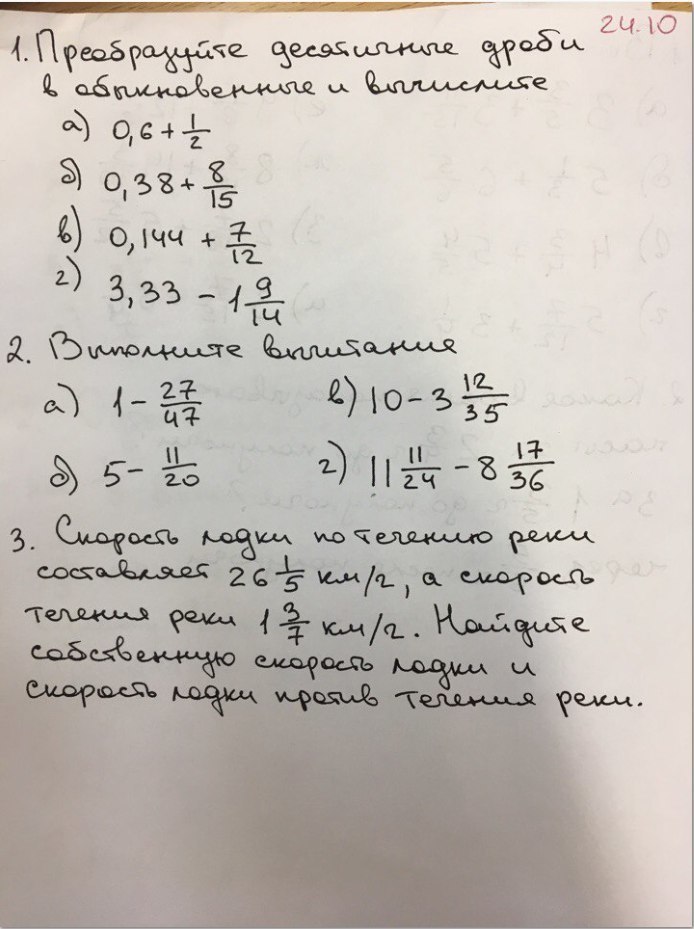 24.10
1. Преобразуйте десятичные дроби
в обыкновенные и вычислите
а) 0,6 + 1/2
б) 0,38 + 8/15
в) 0,144 + 7/12
г) 3,33 - 1 9/14
2. Выполните вычитание
а) 1 - 27/47 в) 10 - 3 12/35
б) 5 - 11/20 г) 11 11/24 - 8 17/36
3. Скорость лодки по течению реки
составляет 26 1/5 км/г, а скорость
течения реки 1 3/7 км/г. Найдите
собственную скорость лодки и
скорость лодки против течения реки.